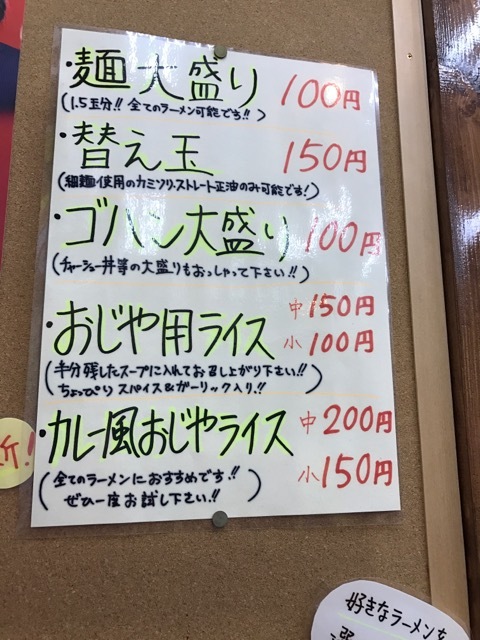 ・麺大盛り 100円
(1.5玉分!! 全てのラーメン可能です!!)
・替え玉 150円
(細麺使用のカミソリ.ストレート正油のみ可能です!)
・ゴハン大盛り 100円
(チャーシュー丼等の大盛りもおっしゃって下さい!!)
・おじや用ライス 中150円
小100円
(半分残したスープに入れてお召し上がり下さい!!
ちょっぴり スパイス&ガーリック入り!!)
新!
・カレー風おじやライス 中200円
小150円
(全てのラーメンにおすすめです!!
ぜひ一度お試し下さい!!)
好きなラーメンを